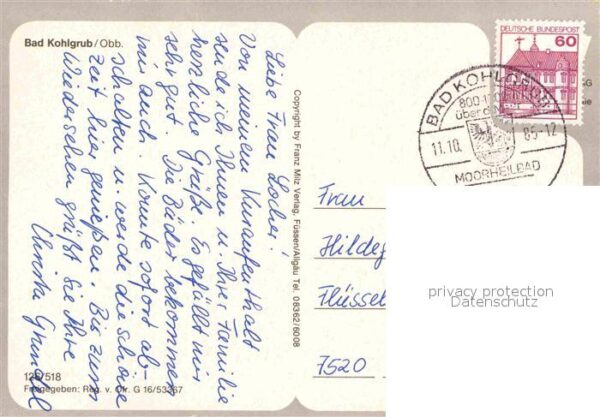 Bad Kohlgrub/Obb.
Liebe Frau Locher!
Von meinem Kuraufenthalt
sende ich Ihnen u. Ihrer Familie
herzliche Grüße. Es gefällt mir
sehr gut. Die Bäder bekommen
mir auch. Konnte sofort ab-
schalten u. werde die schöne
Zeit hier genießen. Bis zum
Wiedersehen grüßt Sie Ihre
Christa
125/518
Freigegeben: Reg. v. Obb. Nr. G 16/53367
Copyright by Franz Milz Verlag, Füssen/Allgäu Tel. 08362/6008
DEUTSCHE BUNDESPOST
60
BAD KOHLGRUB
800-
über d
11.10. 85-12
MOORHEILBAD
Frau
Hildeg
Flüssel
7520
privacy protection
Datenschutz